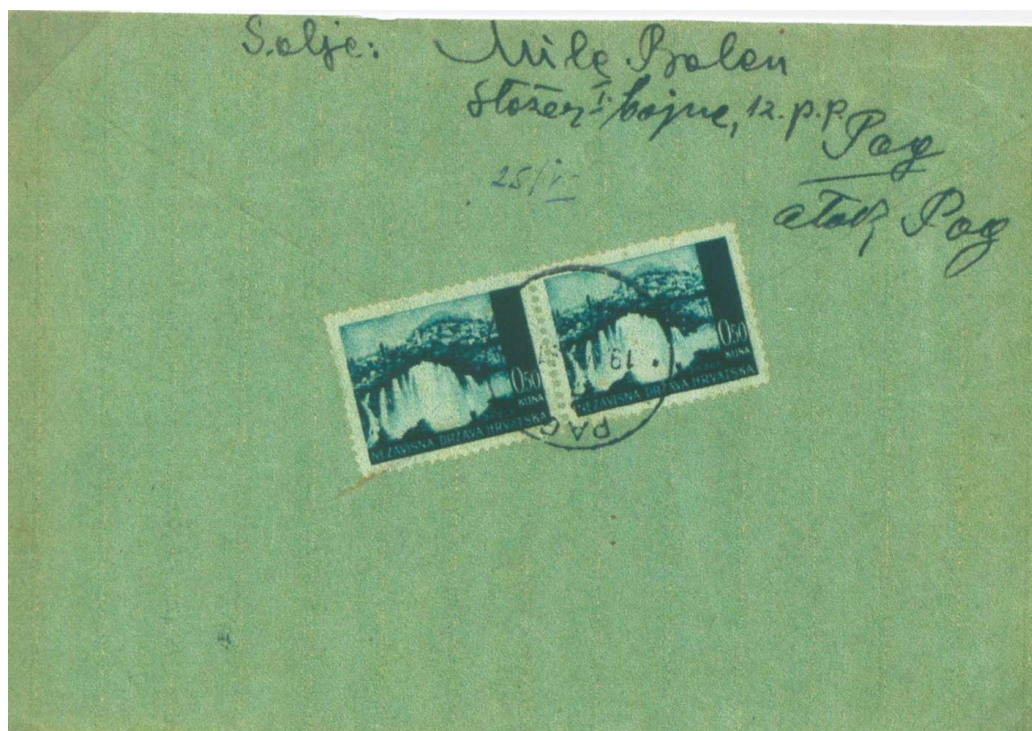 Šalje: Mile Bolen
Stožer I. bojne, 12. p.p.
Pag
otok Pag
25/V
0,50
KUNA
NEZAVISNA DRŽAVA HRVATSKA
0,50
KUNA
NEZAVISNA DRŽAVA HRVATSKA
19
PAG